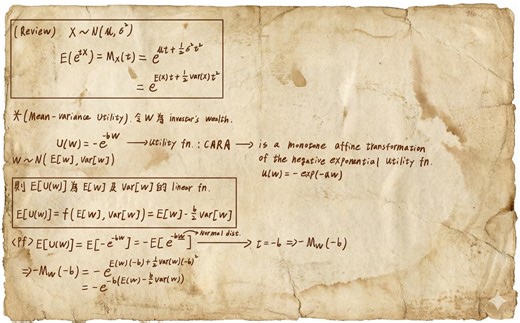 (Review) X ~ N(μ, σ²)
E(e^{tX}) = M_X(t) = e^{μt + ½σ²t²}
= e^{E(X)t + ½Var(X)t²}
* (Mean-variance Utility). 令 W 為 investor's wealth.
U(W) = -e^{-bW} → Utility fn. : CARA → is a monotone affine transformation
of the negative exponential utility fn.
W ~ N(E[W], Var[W])
u(w) = -exp(-aw)
則 E[U(W)] 為 E[W] 及 Var[W] 的 linear fn.
E[U(W)] = f(E[W], Var[W]) = E[W] - b/2 Var[W]
<Pf> E[U(W)] = E[-e^{-bW}] = -E[e^{-bW}] → Normal dist. → t = -b ⇒ -M_W(-b)
⇒ -M_W(-b) = -e^{E(W)(-b) + ½Var(W)(-b)²}
= -e^{-b(E(W) - b/2 Var(W))}